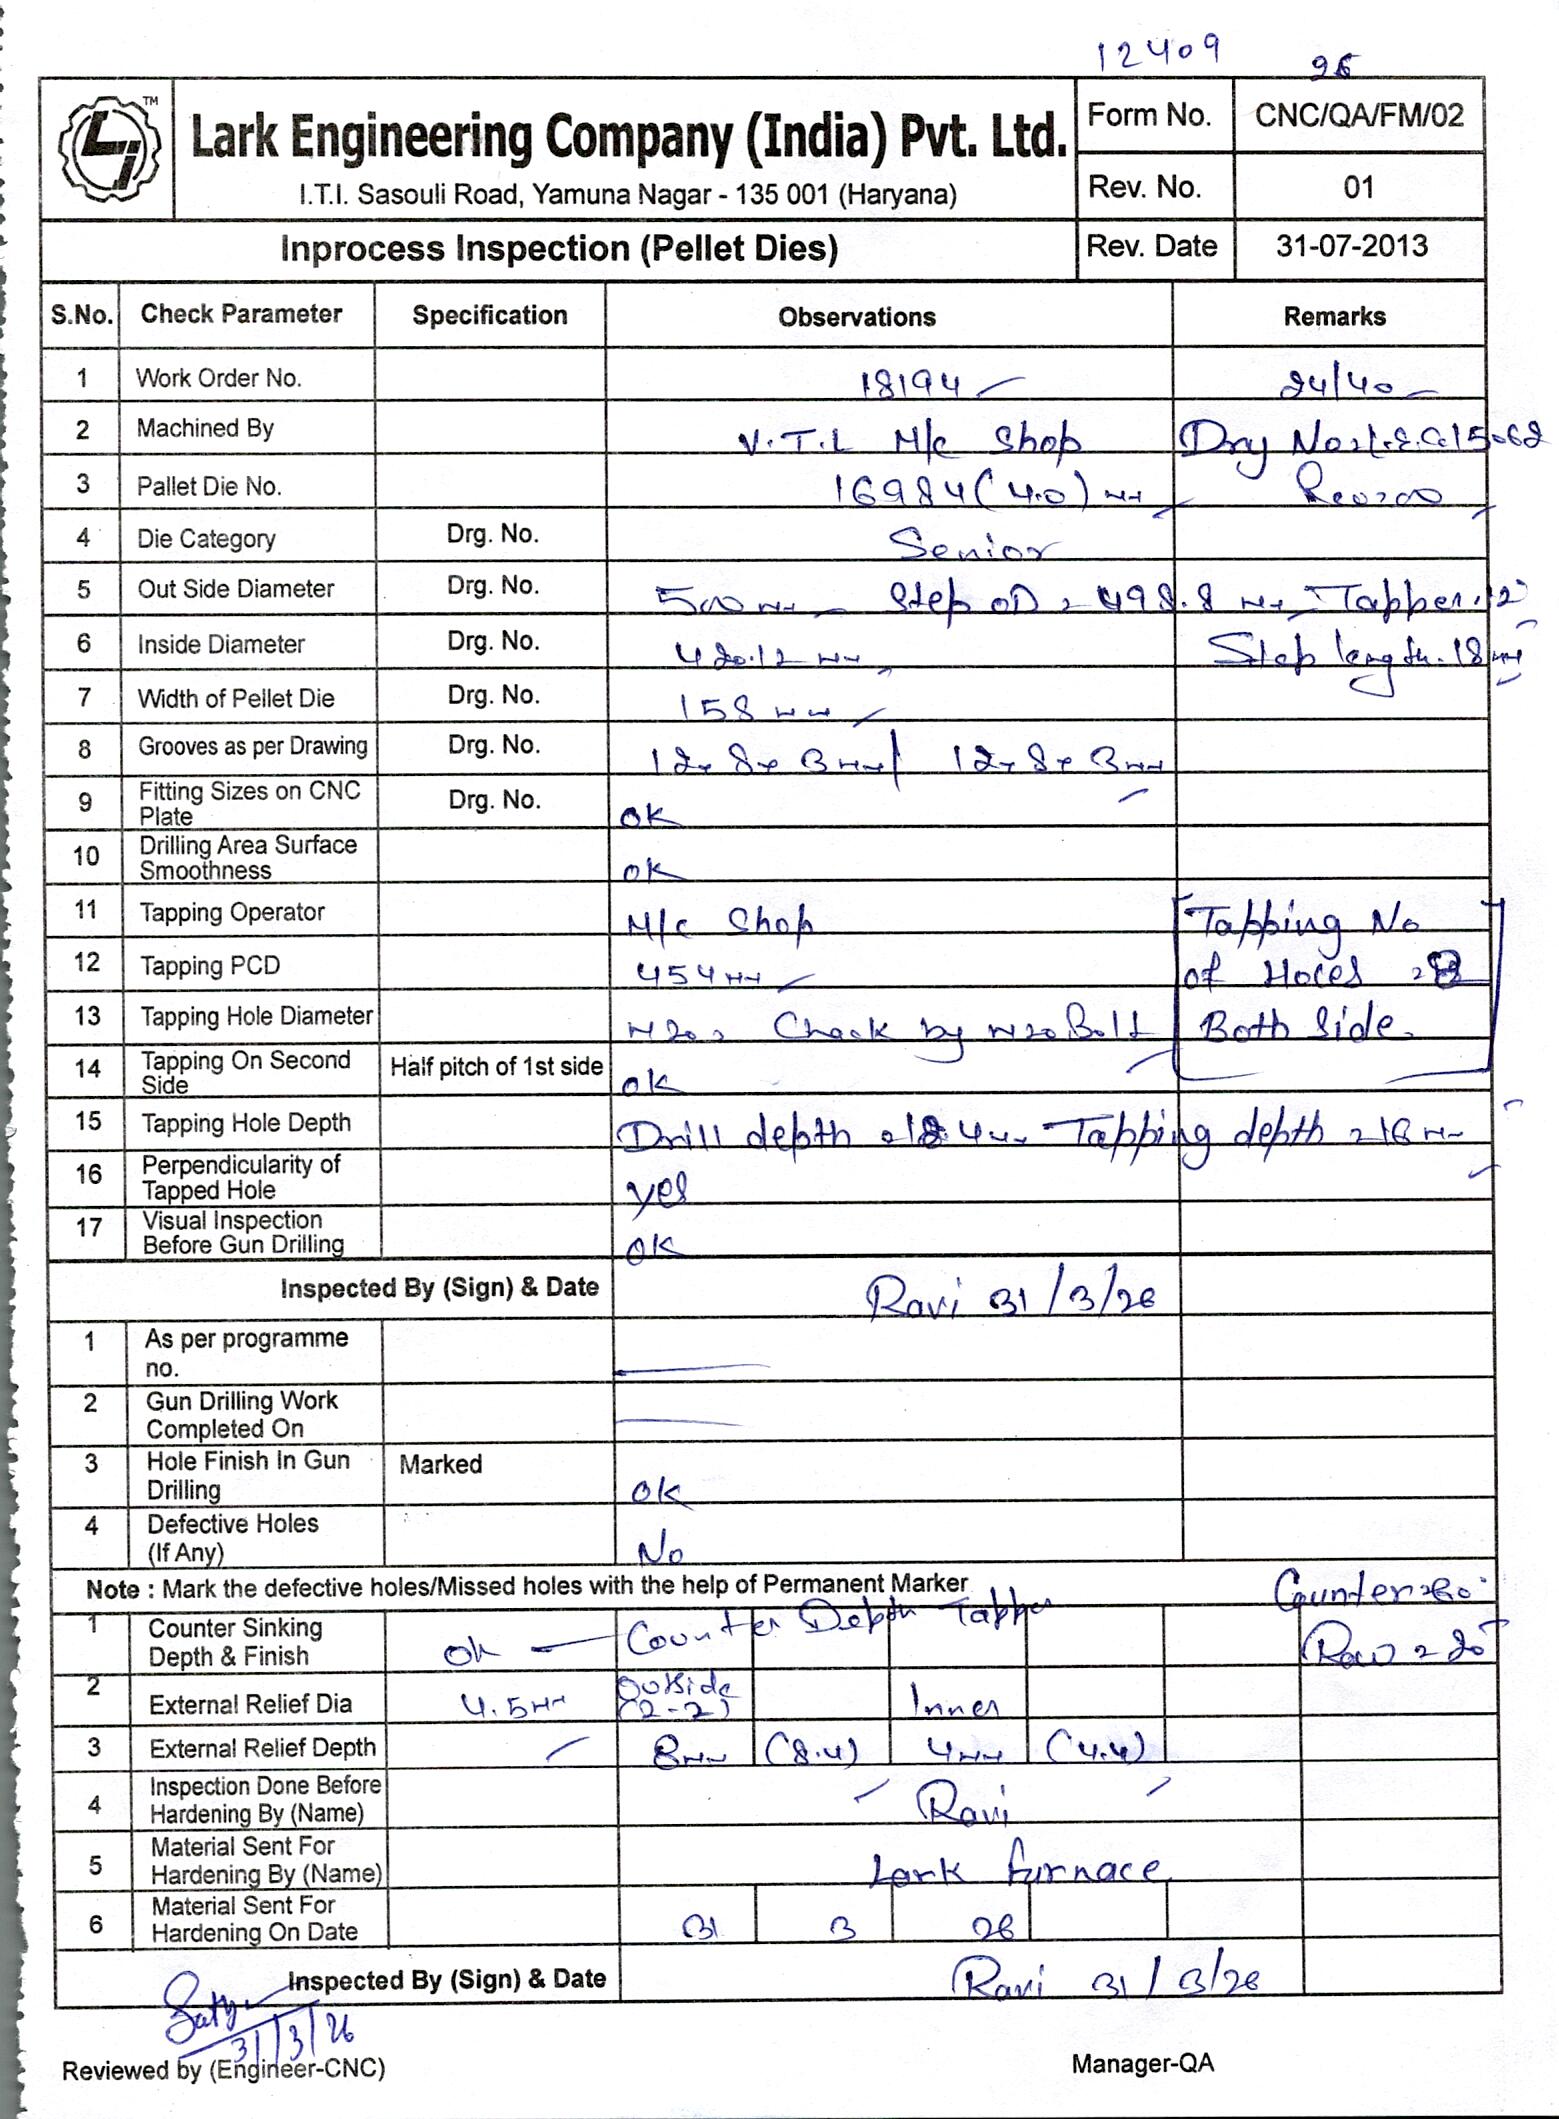 12409 96
LI TM
Lark Engineering Company (India) Pvt. Ltd.
I.T.I. Sasouli Road, Yamuna Nagar - 135 001 (Haryana)
Form No. CNC/QA/FM/02
Rev. No. 01
Inprocess Inspection (Pellet Dies) Rev. Date 31-07-2013
S.No. Check Parameter Specification Observations Remarks
1 Work Order No. 18194 24/40
2 Machined By V.T.L M/c Shop Drg No
3 Pallet Die No. 16984 (4.0) mm Rev=00
4 Die Category Drg. No. Senior
5 Out Side Diameter Drg. No. 500 mm Step OD = 498.8 mm Tapper.12°
6 Inside Diameter Drg. No. 420.12 mm Step length.18 mm
7 Width of Pellet Die Drg. No. 158 mm
8 Grooves as per Drawing Drg. No. 12x8x3mm/ 12x8x3mm
9 Fitting Sizes on CNC Plate Drg. No. ok
10 Drilling Area Surface Smoothness ok
11 Tapping Operator M/c Shop Tapping No
12 Tapping PCD 454mm of Holes = 8
13 Tapping Hole Diameter M20 = Check by M20 Bolt Both Side
14 Tapping On Second Side Half pitch of 1st side ok
15 Tapping Hole Depth Drill depth Tapping depth = 16 mm
16 Perpendicularity of Tapped Hole yes
17 Visual Inspection Before Gun Drilling OK
Inspected By (Sign) & Date Ravi 31/3/26
1 As per programme no.
2 Gun Drilling Work Completed On
3 Hole Finish In Gun Drilling Marked ok
4 Defective Holes (If Any) No
Note : Mark the defective holes/Missed holes with the help of Permanent Marker Counter=60°
1 Counter Sinking Depth & Finish ok — Counter Depth Tapper Row = 20
2 External Relief Dia 4.5mm Outside (2-2) Inner
3 External Relief Depth 8mm (8.4) 4mm (4.4)
4 Inspection Done Before Hardening By (Name) Ravi
5 Material Sent For Hardening By (Name) Lark furnace
6 Material Sent For Hardening On Date 31 3 26
Inspected By (Sign) & Date Ravi 31/3/26
31/3/26
Reviewed by (Engineer-CNC) Manager-QA